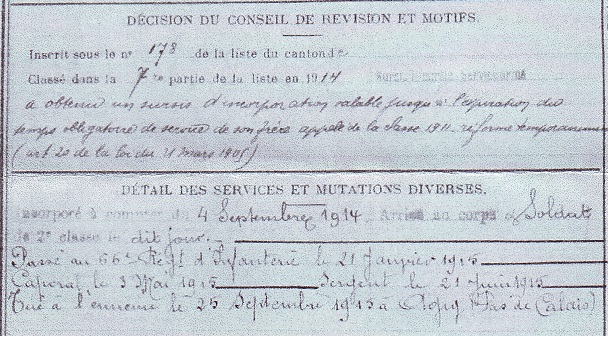 DÉCISION DU CONSEIL DE REVISION ET MOTIFS.
Inscrit sous le nº 178 de la liste du canton de
Classé dans la 7re partie de la liste en 1914
a obtenu un sursis d'incorporation valable jusqu'à l'expiration du
temps obligatoire de service de son frère appelé de la classe 1911. réformé temporairement
(art 20 de la loi du 21 mars 1905)
DÉTAIL DES SERVICES ET MUTATIONS DIVERSES.
Incorporé à compter du 4 Septembre 1914. Arrivé au corps & Soldat
de 2e classe le dit jour.
Passé au 66e Regt d'Infanterie le 21 Janvier 1915
Caporal le 3 Mai 1915 Sergent le 21 Juin 1915
Tué à l'ennemi le 25 Septembre 1915 à Agny (Pas de Calais)